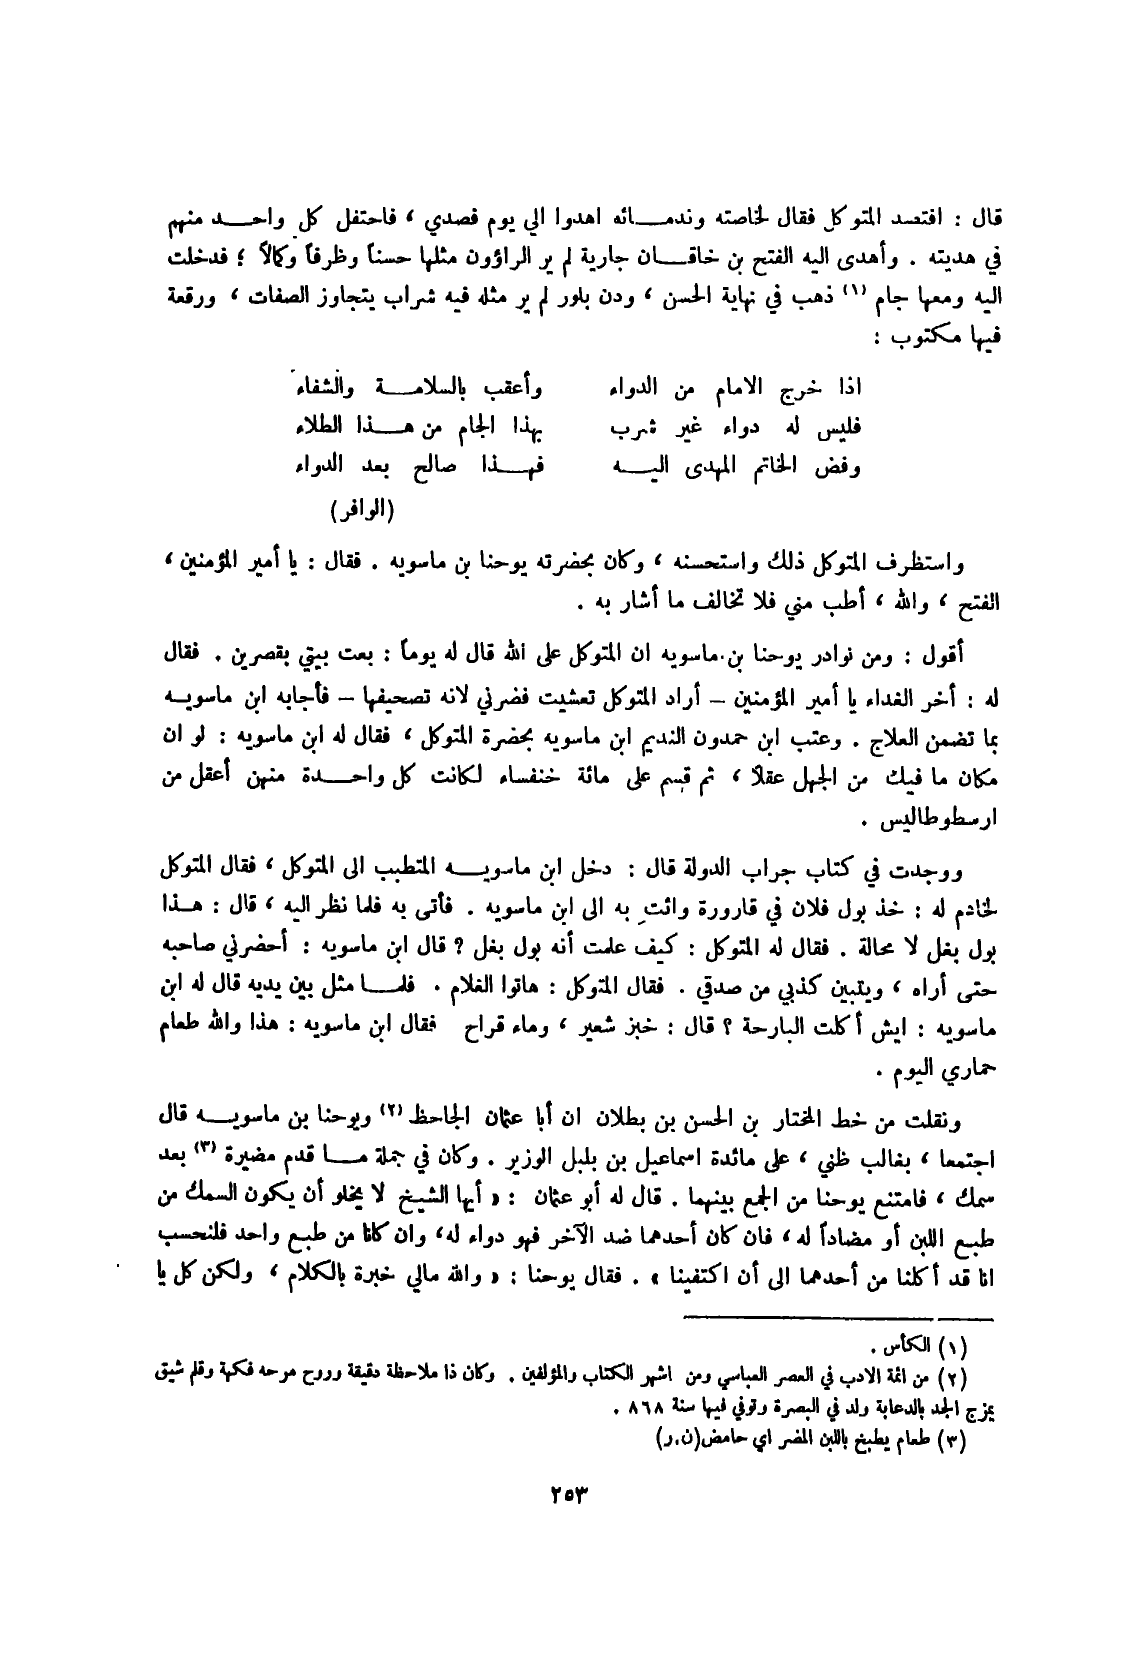 قال : افتصد المتوكل فقال لخاصته وندمائه اهدوا الي يوم فصدي ، فاحتفل كل واحد منهم
في هديته . وأهدى اليه الفتح بن خاقان جارية لم ير الراؤون مثلها حسناً وظرفاً وكمالاً ؛ فدخلت
اليه ومعها جام (١) ذهب في نهاية الحسن ، ودن بلور لم ير مثله فيه شراب يتجاوز الصفات ، ورقعة
فيها مكتوب :
اذا خرج الامام من الدواء وأعقب بالسلامة والشفاء
فليس له دواء غير شرب بهذا الجام من هذا الطلاء
وفض الخاتم المهدى اليه فهذا صالح بعد الدواء
(الوافر)
واستظرف المتوكل ذلك واستحسنه ، وكان بحضرته يوحنا بن ماسويه . فقال : يا أمير المؤمنين ،
الفتح ، والله ، أطب مني فلا تخالف ما أشار به .
أقول : ومن نوادر يوحنا بن ماسويه ان المتوكل على الله قال له يوماً : بعت بيتي بقصرين . فقال
له : أخر الغداء يا أمير المؤمنين – أراد المتوكل تعشيت فضرني لانه تصحيفها – فأجابه ابن ماسويه
بما تضمن العلاج . وعتب ابن حمدون النديم ابن ماسويه بحضرة المتوكل ، فقال له ابن ماسويه : لو ان
مكان ما فيك من الجهل عقلاً ، ثم قسم على مائة خنفساء لكانت كل واحدة منهن أعقل من
ارسطوطاليس .
ووجدت في كتاب جراب الدولة قال : دخل ابن ماسويه المتطبب الى المتوكل ، فقال المتوكل
لخادم له : خذ بول فلان في قارورة وائت به الى ابن ماسويه . فأتى به فلما نظر اليه ، قال : هذا
بول بغل لا محالة . فقال له المتوكل : كيف علمت أنه بول بغل ? قال ابن ماسويه : أحضرني صاحبه
حتى أراه ، ويتبين كذبي من صدقي . فقال المتوكل : هاتوا الغلام . فلما مثل بين يديه قال له ابن
ماسويه : ايش أكلت البارحة ? قال : خبز شعير ، وماء قراح فقال ابن ماسويه : هذا والله طعام
حماري اليوم .
ونقلت من خط المختار بن الحسن بن بطلان ان أبا عثمان الجاحظ (٢) ويوحنا بن ماسويه قال
اجتمعا ، بغالب ظني ، على مائدة اسماعيل بن بلبل الوزير . وكان في جملة ما قدم مضيرة (٣) بعد
سمك ، فامتنع يوحنا من الجمع بينهما . قال له أبو عثمان : « أيها الشيخ لا يخلو أن يكون السمك من
طبع اللبن أو مضاداً له ، فان كان أحدهما ضد الآخر فهو دواء له، وان كانا من طبع واحد فلنحسب
انا قد أكلنا من أحدهما الى أن اكتفينا » . فقال يوحنا : « والله مالي خبرة بالكلام ، ولكن كل يا
(١) الكأس .
(٢) من ائمة الادب في العصر العباسي ومن اشهر الكتاب والمؤلفين . وكان ذا ملاحظة دقيقة وروح مرحه فكهة وقلم شيق
يمزج الجد بالدعابة ولد في البصرة وتوفي فيها سنة ٨٦٨ .
(٣) طعام يطبخ باللبن المضر اي حامض(ن.ر)
٢٥٣